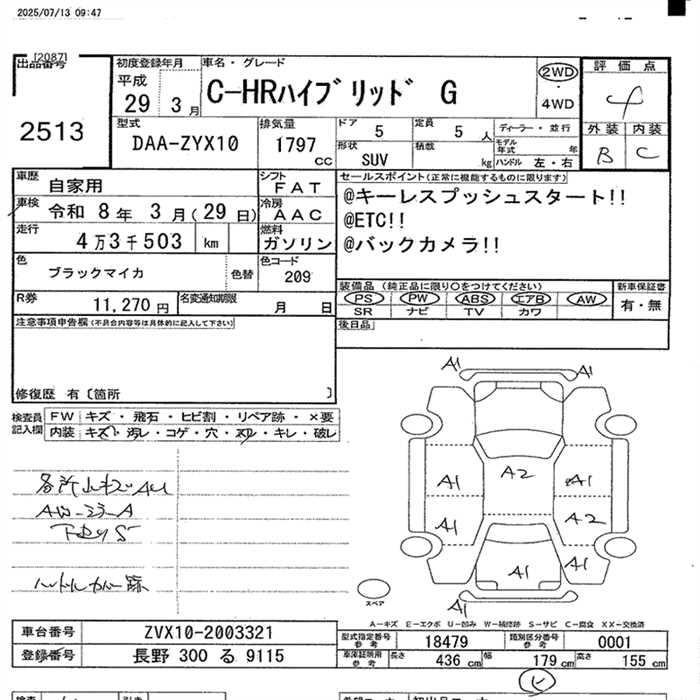 2025/07/13 09:47
[2087]
出品番号 初度登録年月 車名・グレード 2WD 4WD 評価点
2513 平成 29 3月 C-HRハイブリッド G 4
外装 内装
B C
型式 排気量 ドア 5 定員 5人 ディーラー・並行
DAA-ZYX10 1797cc 形状 SUV 積数 kg モデル年式 年 ハンドル 左・右
車歴 自家用 シフト FAT セールスポイント(正常に機能するものに限ります)
車検 令和 8年 3月(29日) 冷房 AAC @キーレスプッシュスタート!!
走行 4万3千503 km 燃料 ガソリン @ETC!!
@バックカメラ!!
色 ブラックマイカ 色替 色コード 209
装備品(純正品に限り○をつけてください) 新車保証書
R券 11,270円 名変通知期限 月 日 PS PW ABS エアB AW 有・無
SR ナビ TV カワ
注意事項申告欄(不具合内容等は具体的に記入して下さい) 後日品
修復歴 有〔箇所 〕
検査員記入欄 FW キズ・飛石・ヒビ割・リペア跡・×要
内装 キズ・汚レ・コゲ・穴・スレ・キレ・破レ
A1 A1
A1 A2 A1
A1 A2
A1 A1
A1
スペア
A-キズ E-エクボ U-凹み W-補修跡 S-サビ C-腐食 XX-交換済
車台番号 ZVX10-2003321 型式指定番号 参考 18479 類別区分番号 参考 0001
登録番号 長野 300 る 9115 車庫証明用 参考 長さ 436cm 幅 179cm 高さ 155cm